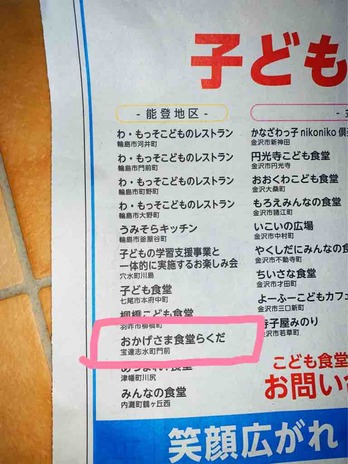 子ども
- 能登地区 -
わ・もっそこどものレストラン
輪島市河井町
わ・もっそこどものレストラン
輪島市門前町
わ・もっそこどものレストラン
輪島市町野町
わ・もっそこどものレストラン
輪島市大野町
うみぞらキッチン
輪島市釜屋谷町
子どもの学習支援事業と
一体的に実施するお楽しみ会
穴水町川島
子ども食堂
七尾市本府中町
柳橋こども食堂
羽咋市柳橋町
おかげさま食堂らくだ
宝達志水町門前
食堂
津幡町川尻
みんなの食堂
内灘町鶴ヶ丘西
かなざわっ子nikoniko倶
金沢市新神田
円光寺こども食堂
金沢市円光寺
おおくわこども食堂
金沢大桑町
もろえみんなの食堂
金沢市諸江町
いこいの広場
金沢市中村町
やくしだにみんなの食
金沢市不動寺町
ちいさな食堂
金沢市才田町
よーふーこどもカフェ
金沢市三口新町
寺子屋みのり
金沢市若草町
こども食堂
お問い
笑顔広がれ